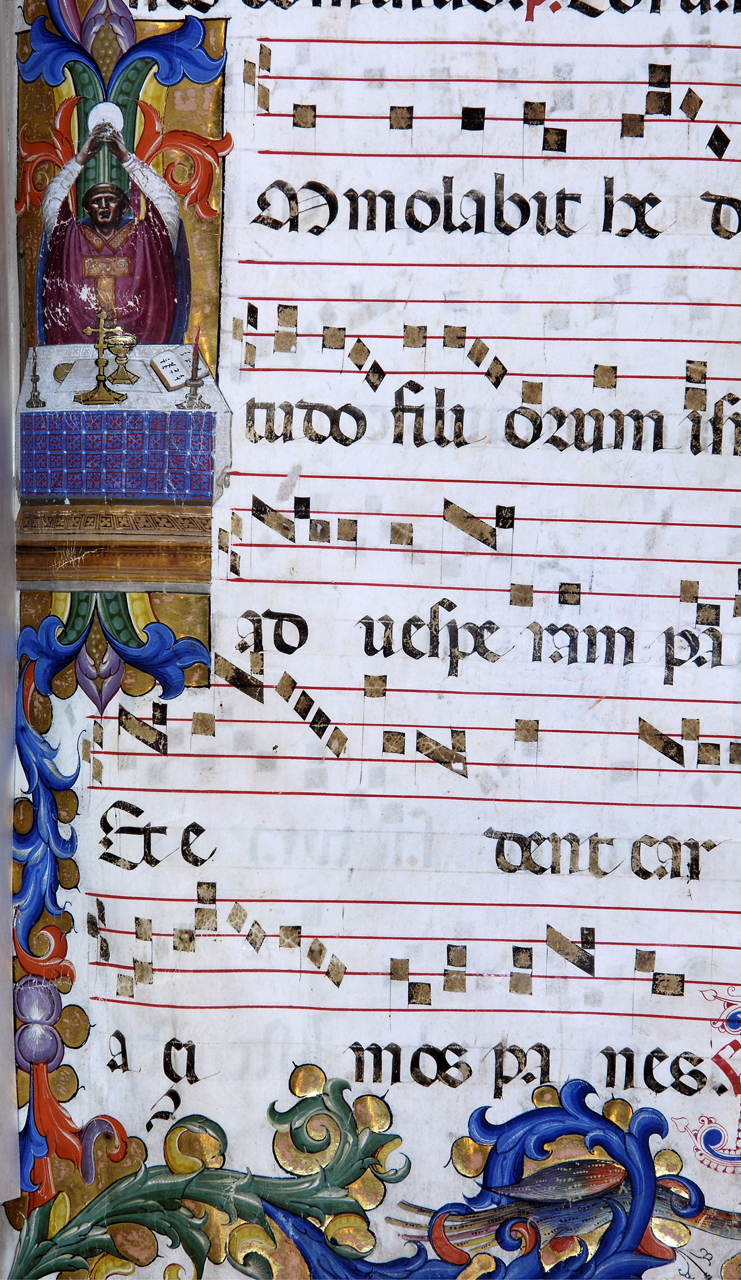 Mmolabit he d
tudo fili orum
ad uespe ram pa
Et e dent car
a çi mos pa nes.